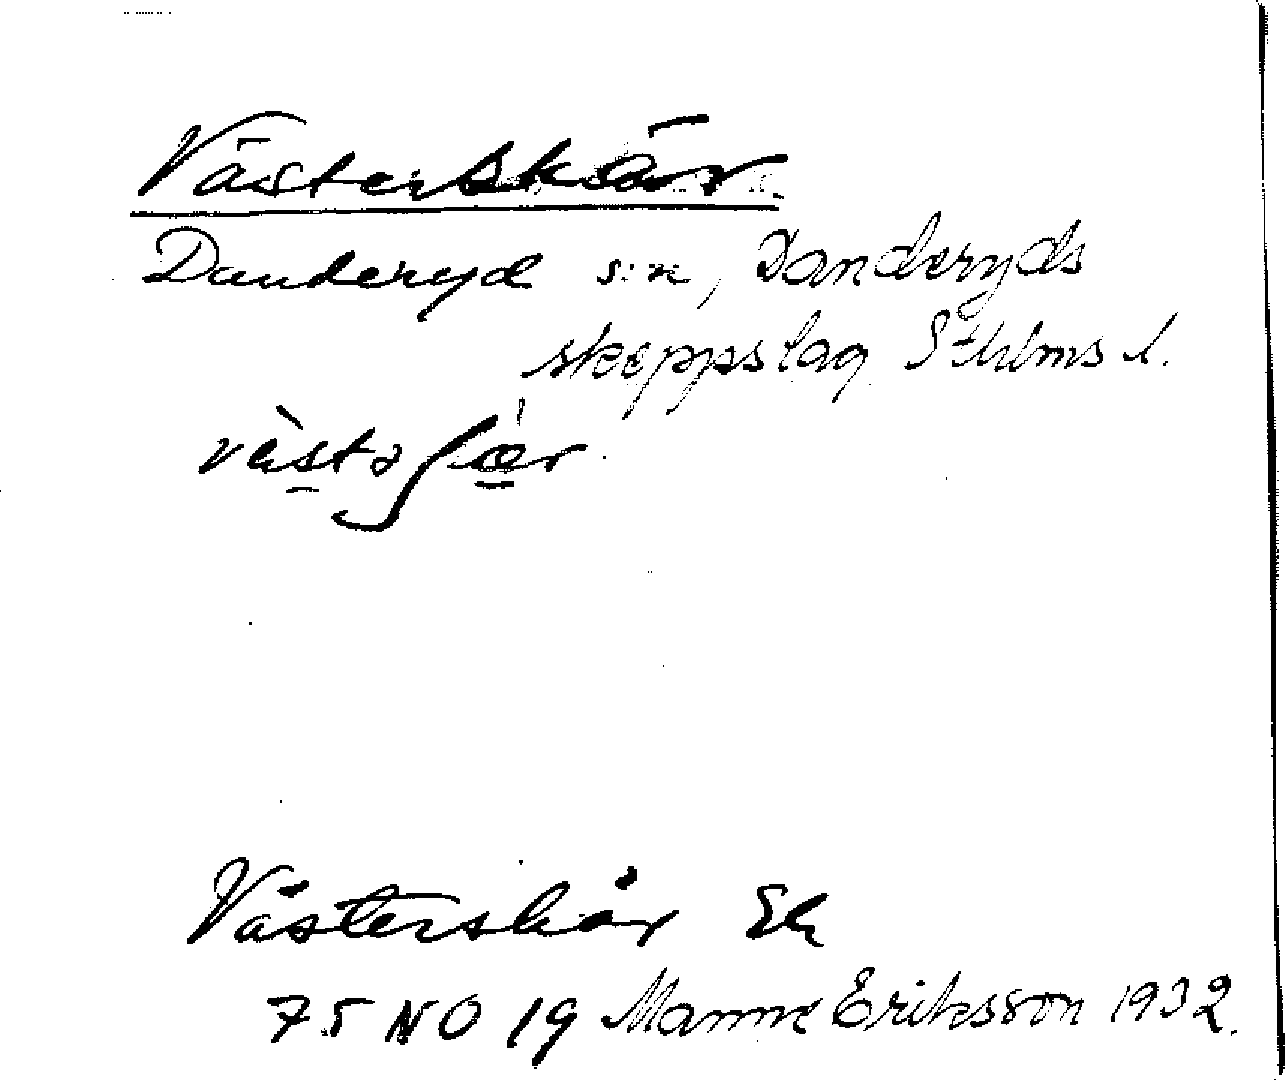 Västerskär
Danderyd s:n, Danderyds
skeppslag Sthlms l.
västaʃæ̀r
Västerskär Ek
75 NO 19 Manne Eriksson 1932.